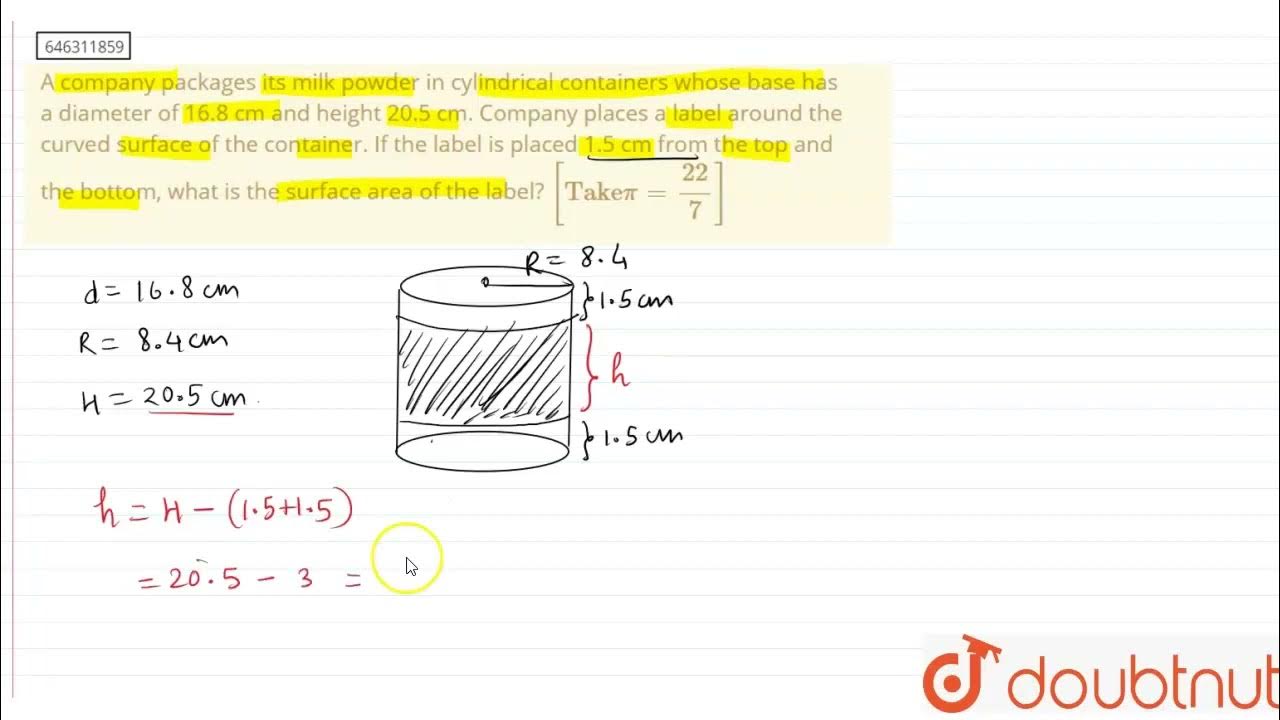 646311859
A company packages its milk powder in cylindrical containers whose base has
a diameter of 16.8 cm and height 20.5 cm. Company places a label around the
curved surface of the container. If the label is placed 1.5 cm from the top and
the bottom, what is the surface area of the label? [Takeπ = 22/7]
R = 8.4
d = 16.8 cm
1.5 cm
R = 8.4 cm
h
H = 20.5 cm.
1.5 cm
h = H - (1.5+1.5)
= 20.5 - 3 =
doubtnut